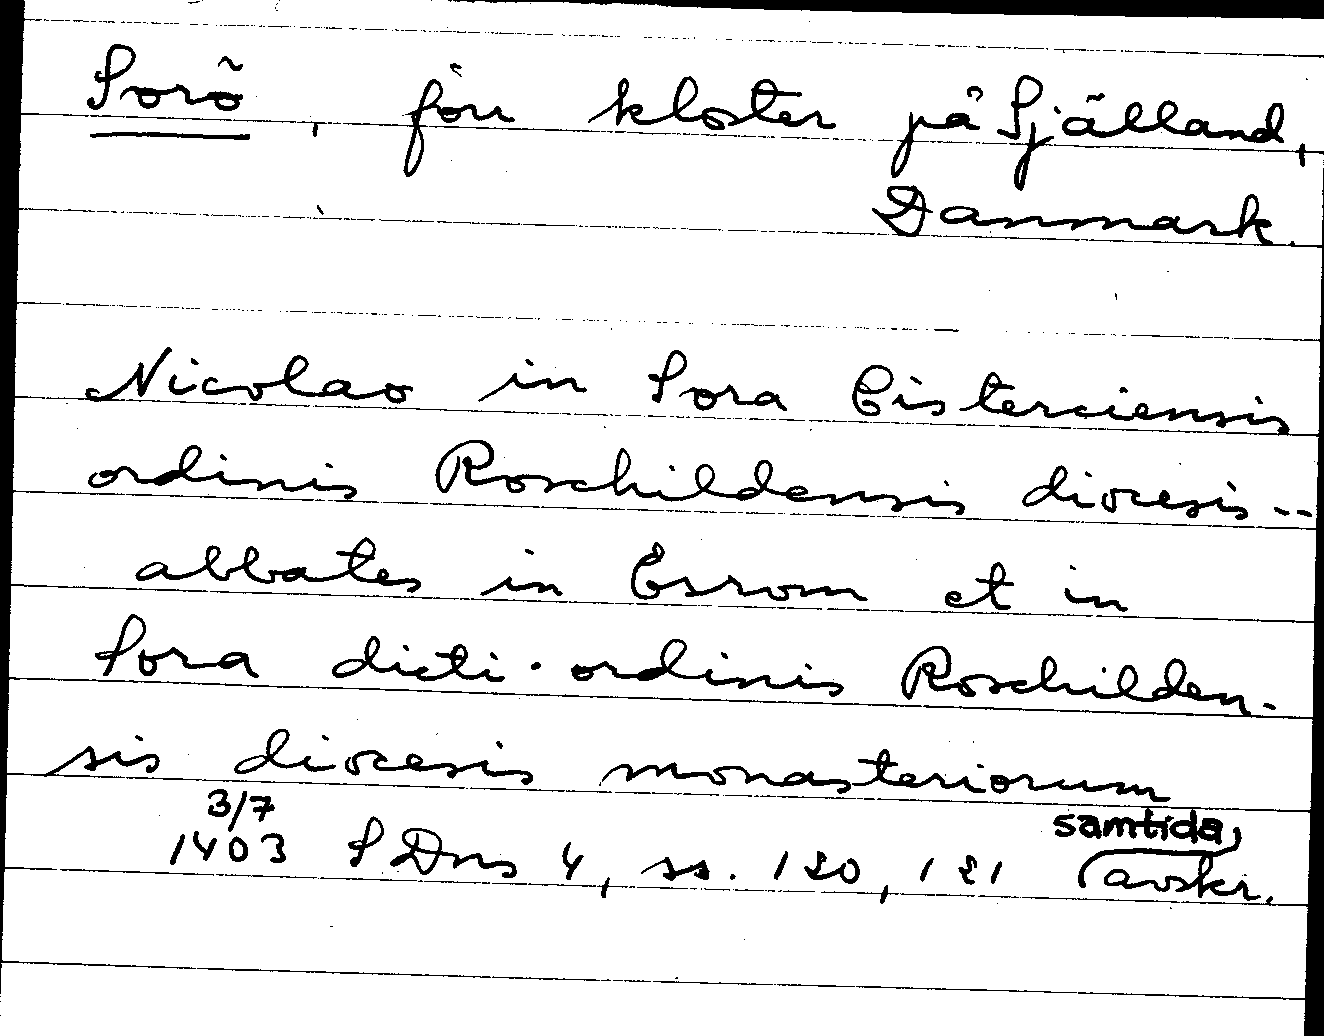 Sorö, förr kloster på Själland,
Danmark.
Nicolao in Sora Cisterciensis
ordinis Roschildensis diocesis --
abbates in Esrom et in
Sora dicti ordinis Roschilden-
sis diocesis monasteriorum
3/7 samtida
1403 SDns 4, ss. 120, 121 (avskr.